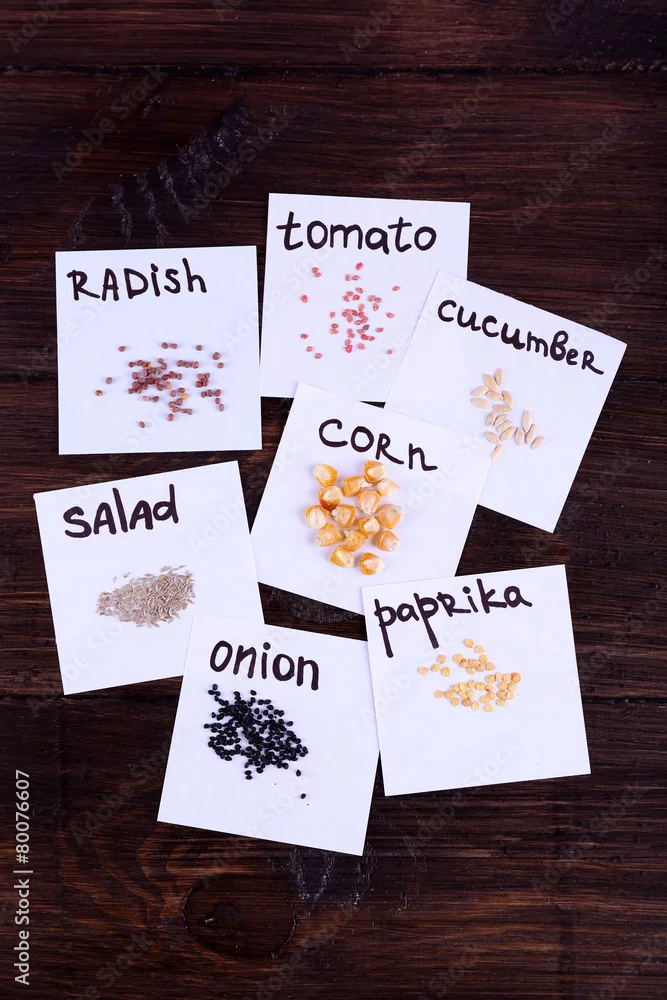 tomato
RADish
cucumBer
CORn
SALAD
paprika
Onion
Adobe Stock | #80076607